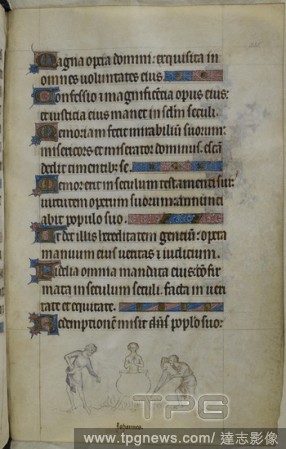 Magna opera domini: exquisita in
omnes voluntates eius.
Confessio i magnificētia opus eius:
et iusticia eius manet in sclm seculi.
Memoriam fecit mirabiliū suorum:
misericors et miserator dominus. escā
dedit timentibꝫ se.
Memor erit in seculum testamenti sui:
virtutem operum suorum annunci
abit populo suo.
Ut det illis hereditatem gentiū: opera
manuum eius veritas i iudicium.
Fidelia omnia mandata eius: cōfir
mata in seculum seculi. facta in veri
tate et equitate.
Redemptionē misit dn̄s poplo suo:
TPG
www.tpgnews.com/ 達志影像